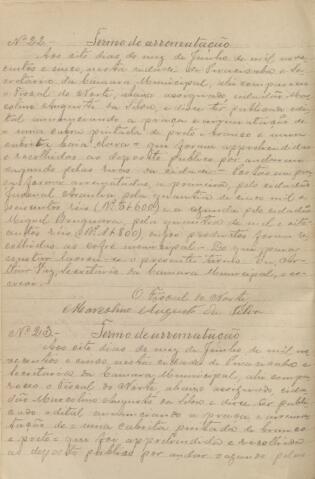 Nº 22 - Termo de arrematação
Aos sete dias do mez de Junho de mil, nove
centos e cinco, nesta cidade de Piracicaba e Se-
cretaria da Camara Municipal, ahi compareceu
o Fiscal do Norte, abaixo assignado, cidadão Mar-
colino Augusto da Silva, e disse ter publicado edi-
tal annunciando a praça e arrematação de
uma cabra pintada de preto e branco e uma
cabrita - que foram apprehendidas
e recolhidas ao deposito publico por andarem
vagando pelas ruas da cidade.
foram arrematadas, a primeira, pelo cidadão
pela quantia de cinco mil e
réis e a segunda pelo cidadão
Miguel pela quantia de mil e oito
centos réis (Rs. 1$800) cujos productos foram re-
colhidos ao cofre municipal. - Do que para
constar lavrou-se o presente termo. Eu,
Secretario da Camara Municipal, o es-
crevi.
O Fiscal do Norte
Marcolino Augusto da Silva
Nº 23 - Termo de arrematação
Aos sete dias do mez de Junho de mil no-
vecentos e cinco, nesta cidade de Piracicaba e
Secretaria da Camara Municipal, ahi compa-
receu o Fiscal do Norte, abaixo assignado, cida-
dão Marcolino Augusto da Silva, e disse ter publi-
cado edital annunciando a praça e arrema-
tação de - uma cabrita pintada de branco
e preto - que foi apprehendida e recolhida
ao deposito publico por andar vagando pelas